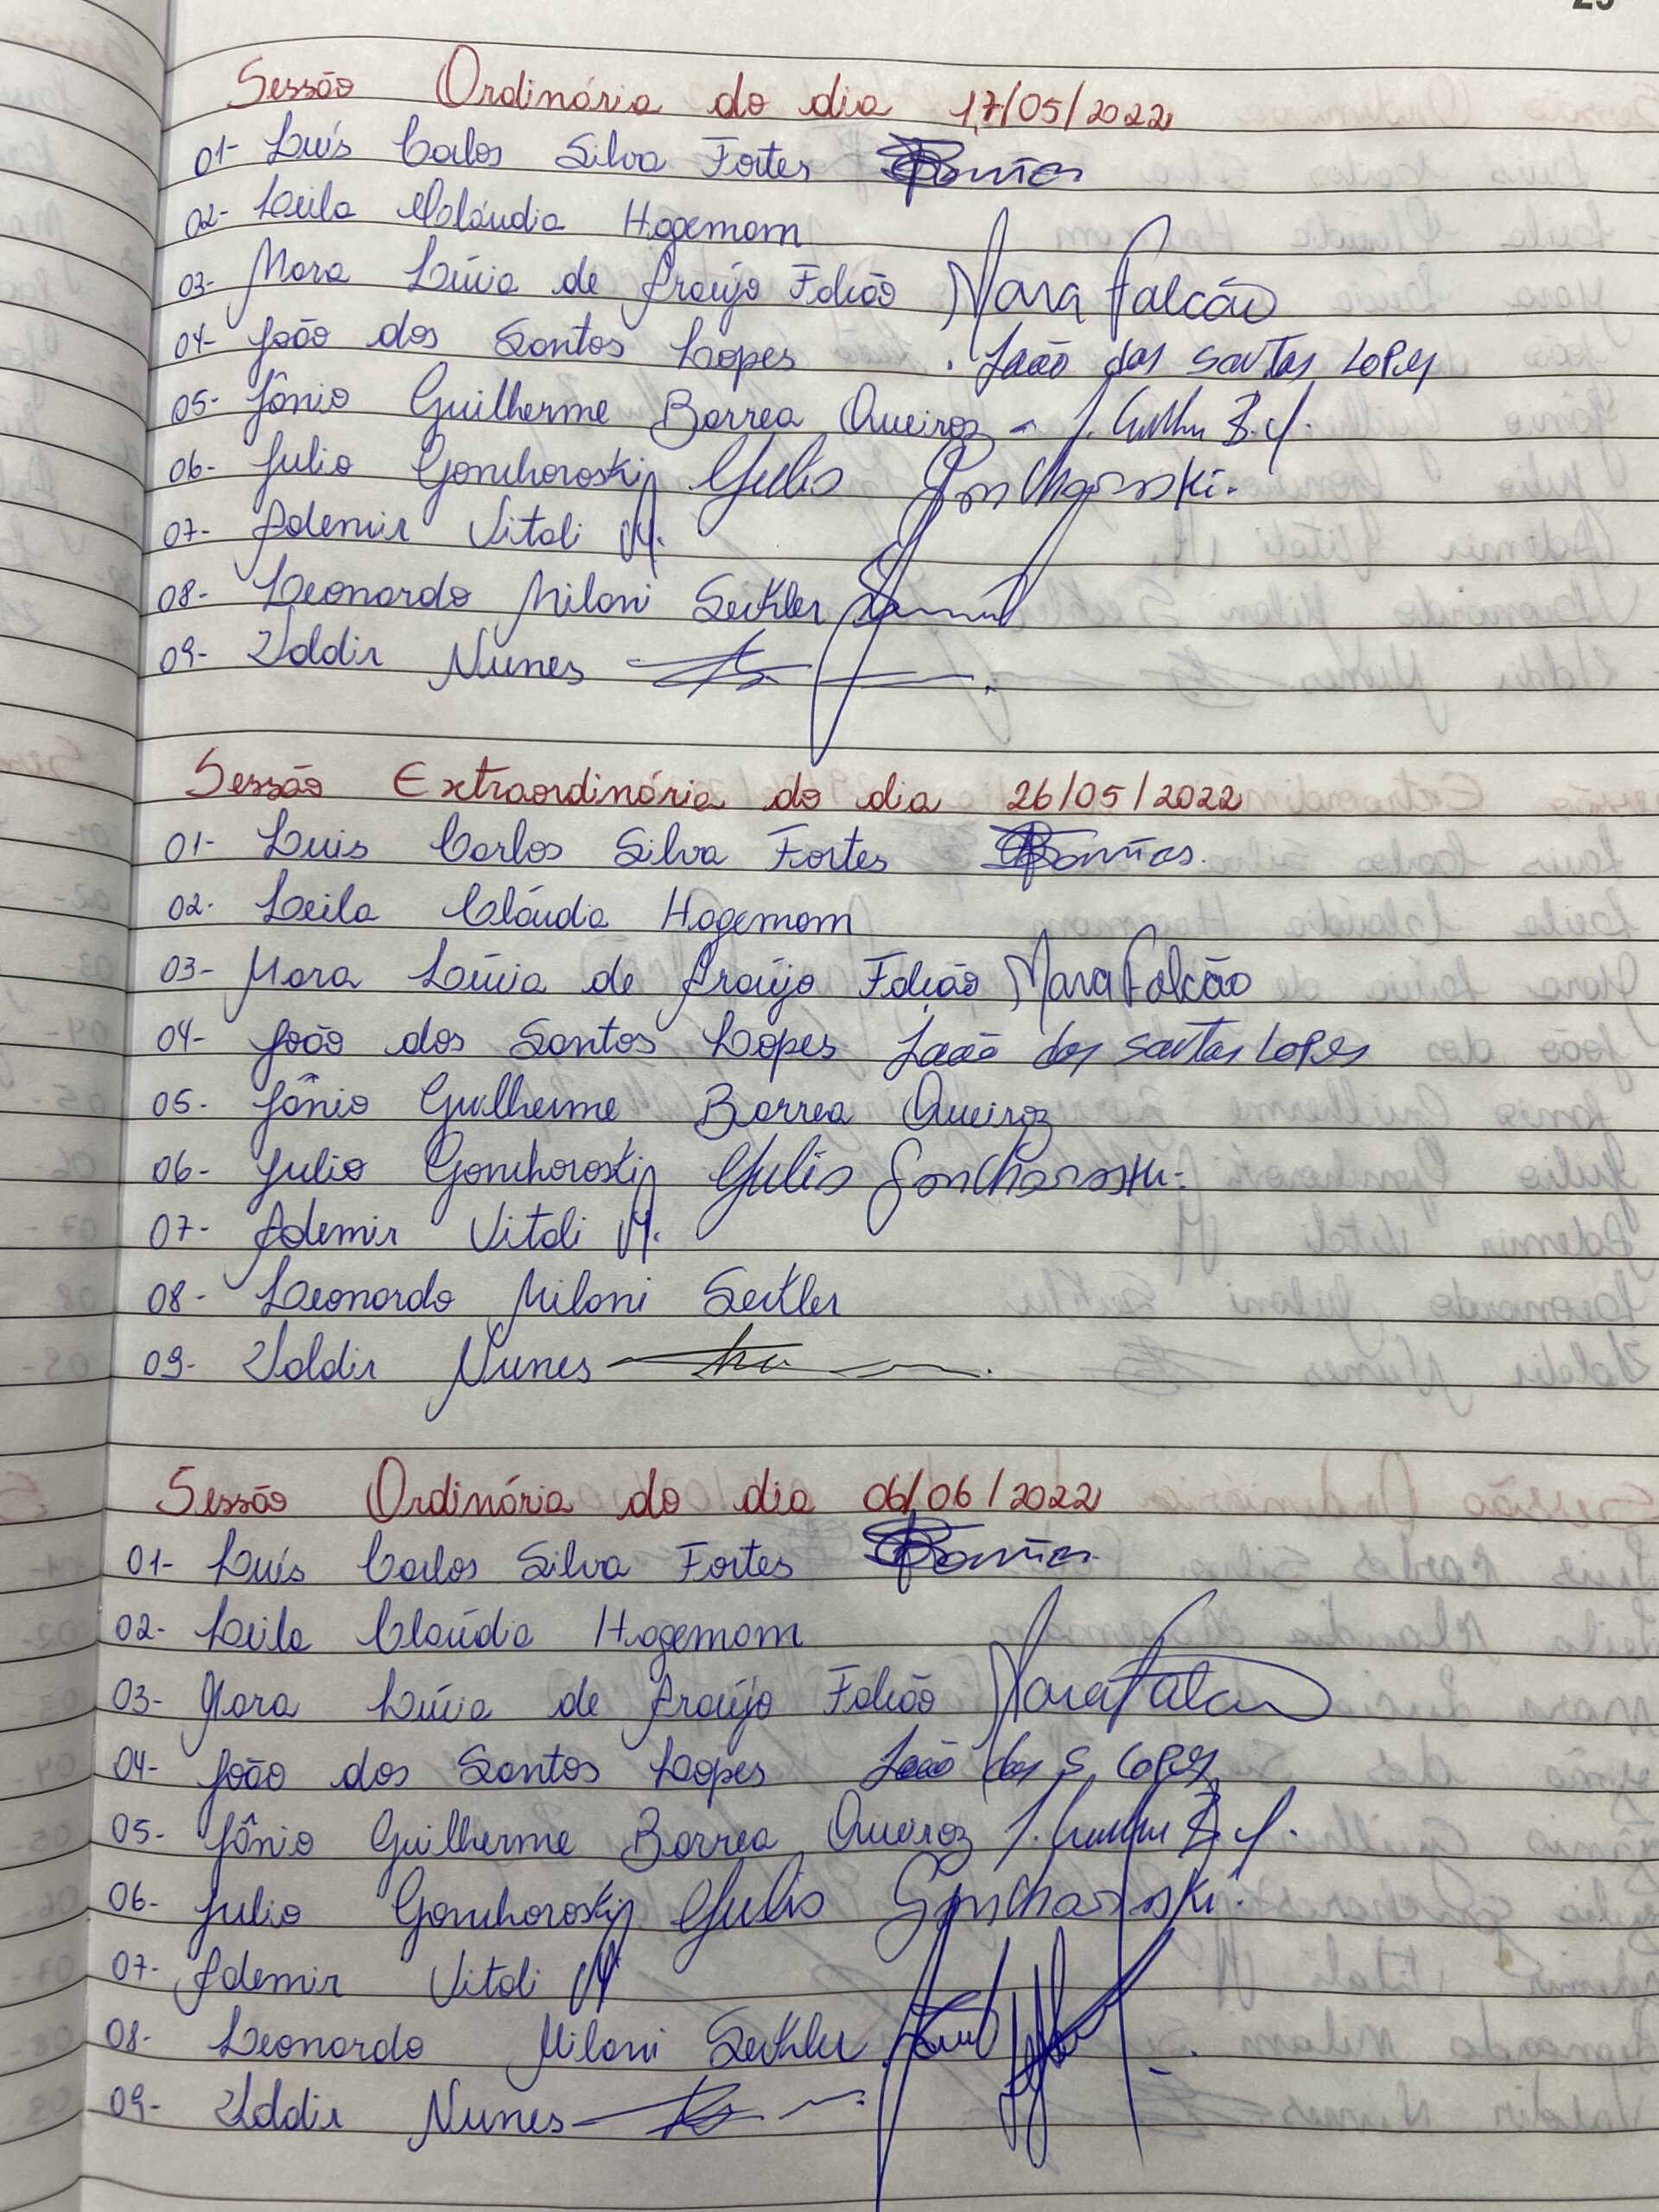 Sessão Ordinária do dia 17/05/2022
01- Luís Carlos Silva Fortes
02- Leila Cláudia Hagemam
03- Mara Lúcia de Araújo Falcão Mara Falcão
04- João dos Santos Lopes João dos Santos Lopes
05- Jânio Guilherme Barrea Queiroz - J.
06- Julio Gonchoroski Julio Gonchoroski.
07- Ademir Vitali
08- Leonardo Milani Seckler
09- Valdir Nunes
Sessão Extraordinária do dia 26/05/2022
01- Luis Carlos Silva Fortes
02- Leila Cláudia Hagemam
03- Mara Lúcia de Araújo Falcão Mara Falcão
04- João dos Santos Lopes João dos Santos Lopes
05- Jânio Guilherme Barrea Queiroz
06- Julio Gonchoroski Julio Gonchoroski
07- Ademir Vitali
08- Leonardo Milani Seckler
09- Valdir Nunes
Sessão Ordinária do dia 06/06/2022
01- Luís Carlos Silva Fortes
02- Leila Claúdia Hagemam
03- Mara Lúcia de Araújo Falcão Mara
04- João dos Santos Lopes João dos S. Lopes
05- Jânio Guilherme Barrea Queiroz J.
06- Julio Gonchoroski Julio Gonchoroski.
07- Ademir Vitali
08- Leonardo Milani Seckler
09- Valdir Nunes